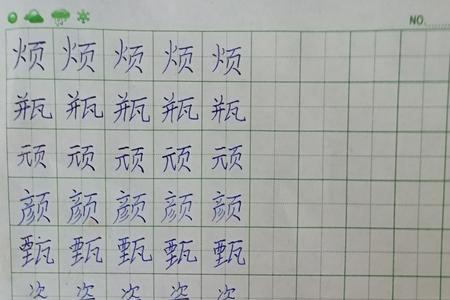 NO.
烦 烦 烦 烦 烦
瓶 瓶 瓶 瓶 瓶
顽 顽 顽 顽 顽
颜 颜 颜 颜 颜
甄 甄 甄 甄 甄